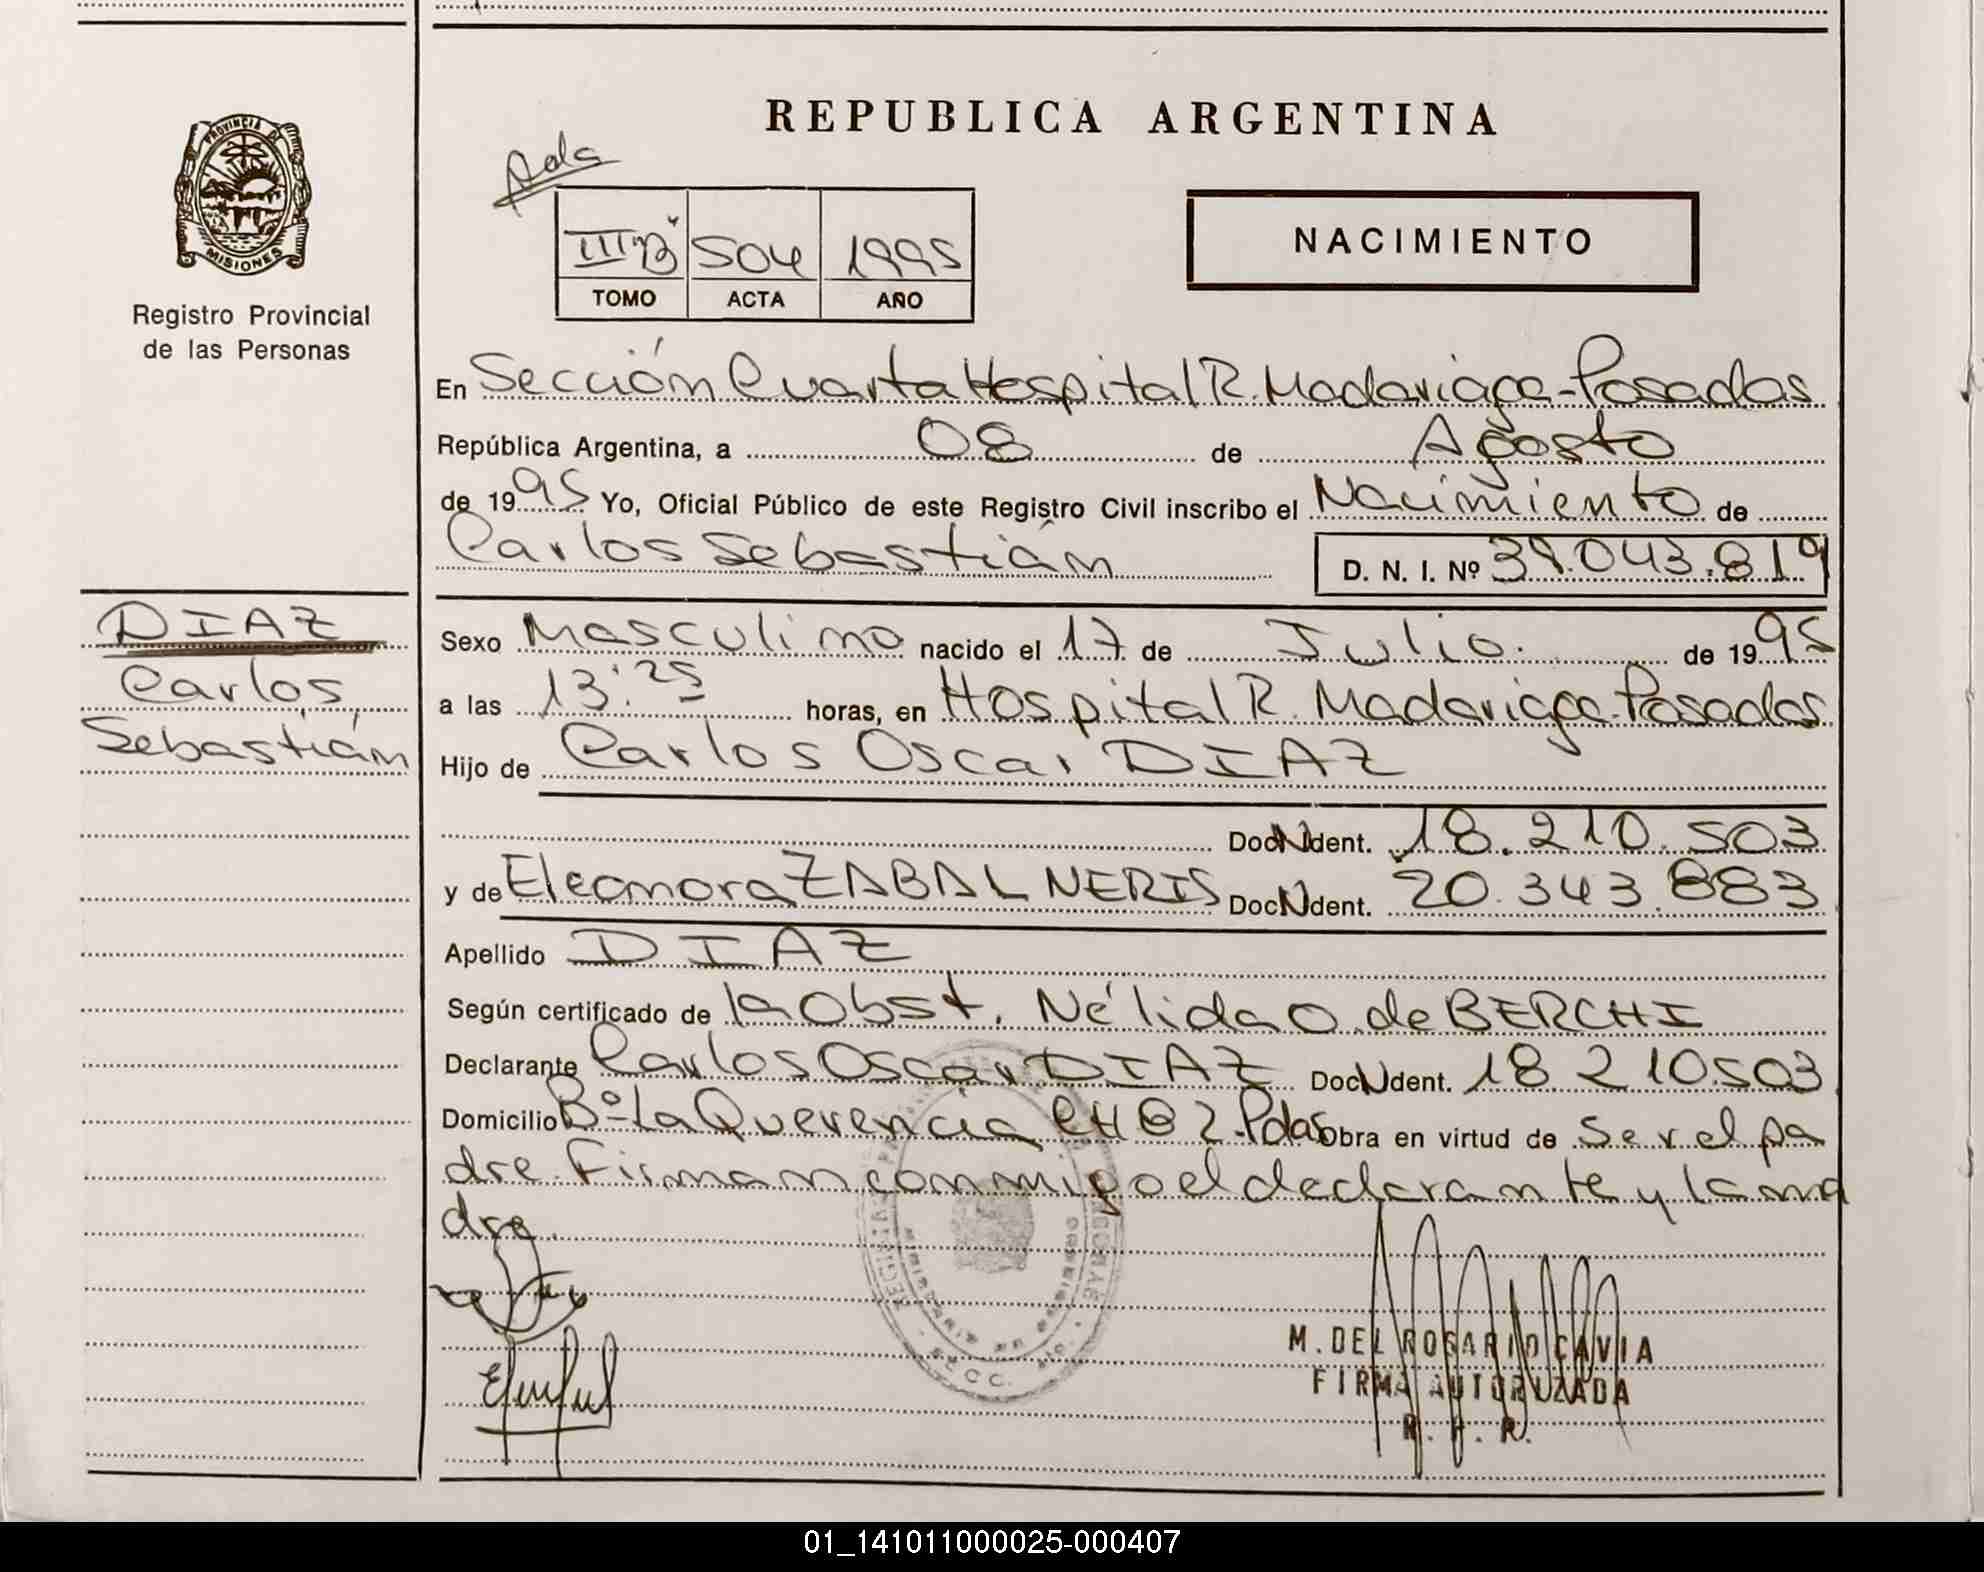 REPUBLICA ARGENTINA
PROVINCIA DE
MISIONES
Registro Provincial
de las Personas
III"B" 504 1995
TOMO ACTA AÑO
NACIMIENTO
En Sección Cuarta Hospital R. Madariaga-Posadas
República Argentina, a 08 de Agosto
de 1995 Yo, Oficial Público de este Registro Civil inscribo el Nacimiento de
Carlos Sebastián D. N. I. Nº 39.043.819
DIAZ
Carlos
Sebastián
Sexo Masculino nacido el 17 de Julio. de 1995
a las 13:25 horas, en Hospital R. Madariaga-Posadas
Hijo de Carlos Oscar DIAZ
DocNdent. 18.210.503
y de Eleonora ZABAL NERIS DocNdent. 20.343.883
Apellido DIAZ
Según certificado de la Obst. Nélida O. de BERCHI
Declarante Carlos Oscar DIAZ DocNdent. 18 210.503
Domicilio Bº La Querencia CH 82-Pdas Obra en virtud de Ser el pa
dre. Firman conmigo el declarante y la ma
dre.
M. DEL ROSARIO CAVIA
FIRMA AUTORIZADA
01_141011000025-000407